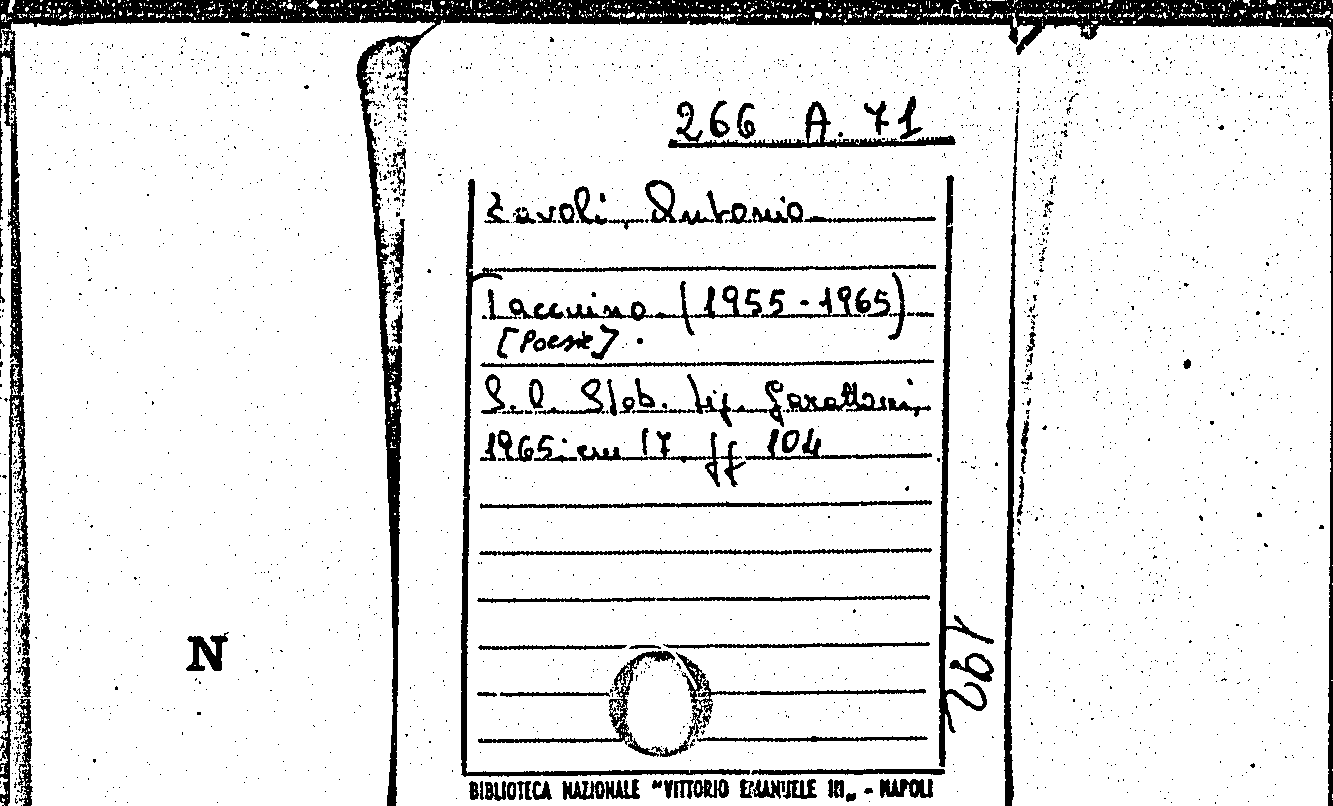 266 A. 71
Zavoli, Antonio.
Taccuino. (1955-1965)
[Poesie].
S. l. Stab. tip. Garattoni,
1965: cm 17. ff 104
N
BIBLIOTECA NAZIONALE "VITTORIO EMANUELE III„ - NAPOLI